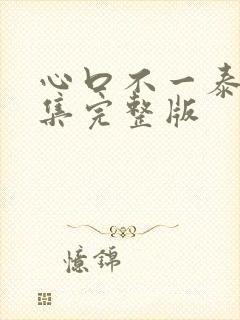 心口不一泰
集完整版
憶錦